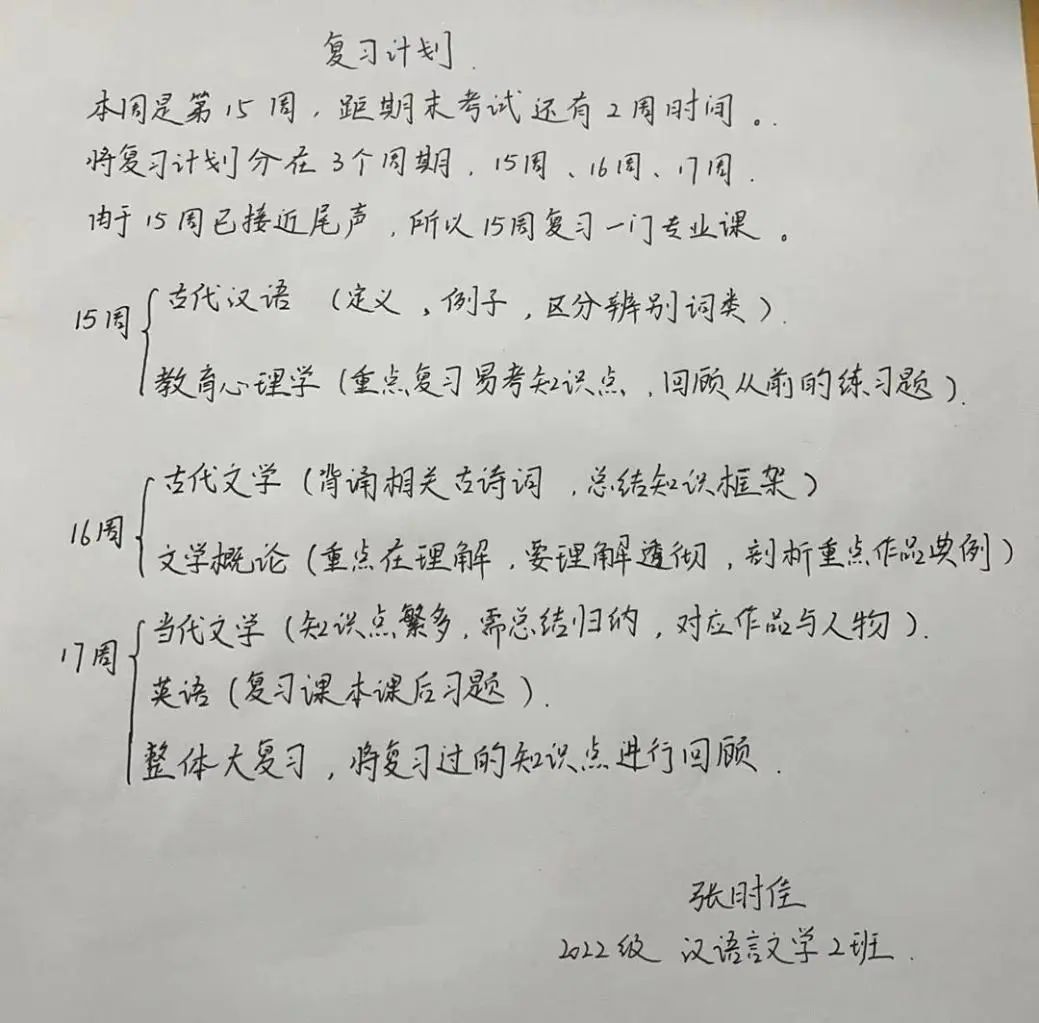 复习计划.
本周是第15周，距期末考试还有2周时间。
将复习计划分在3个周期，15周、16周、17周.
由于15周已接近尾声，所以15周复习一门专业课。
15周
古代汉语（定义，例子，区分辨别词类）.
教育心理学（重点复习易考知识点，回顾从前的练习题）.
16周
古代文学（背诵相关古诗词，总结知识框架）
文学概论（重点在理解，要理解透彻，剖析重点作品典例）
17周
当代文学（知识点繁多，需总结归纳，对应作品与人物）.
英语（复习课本课后习题）.
整体大复习，将复习过的知识点进行回顾.
张时佳
2022级 汉语言文学2班.